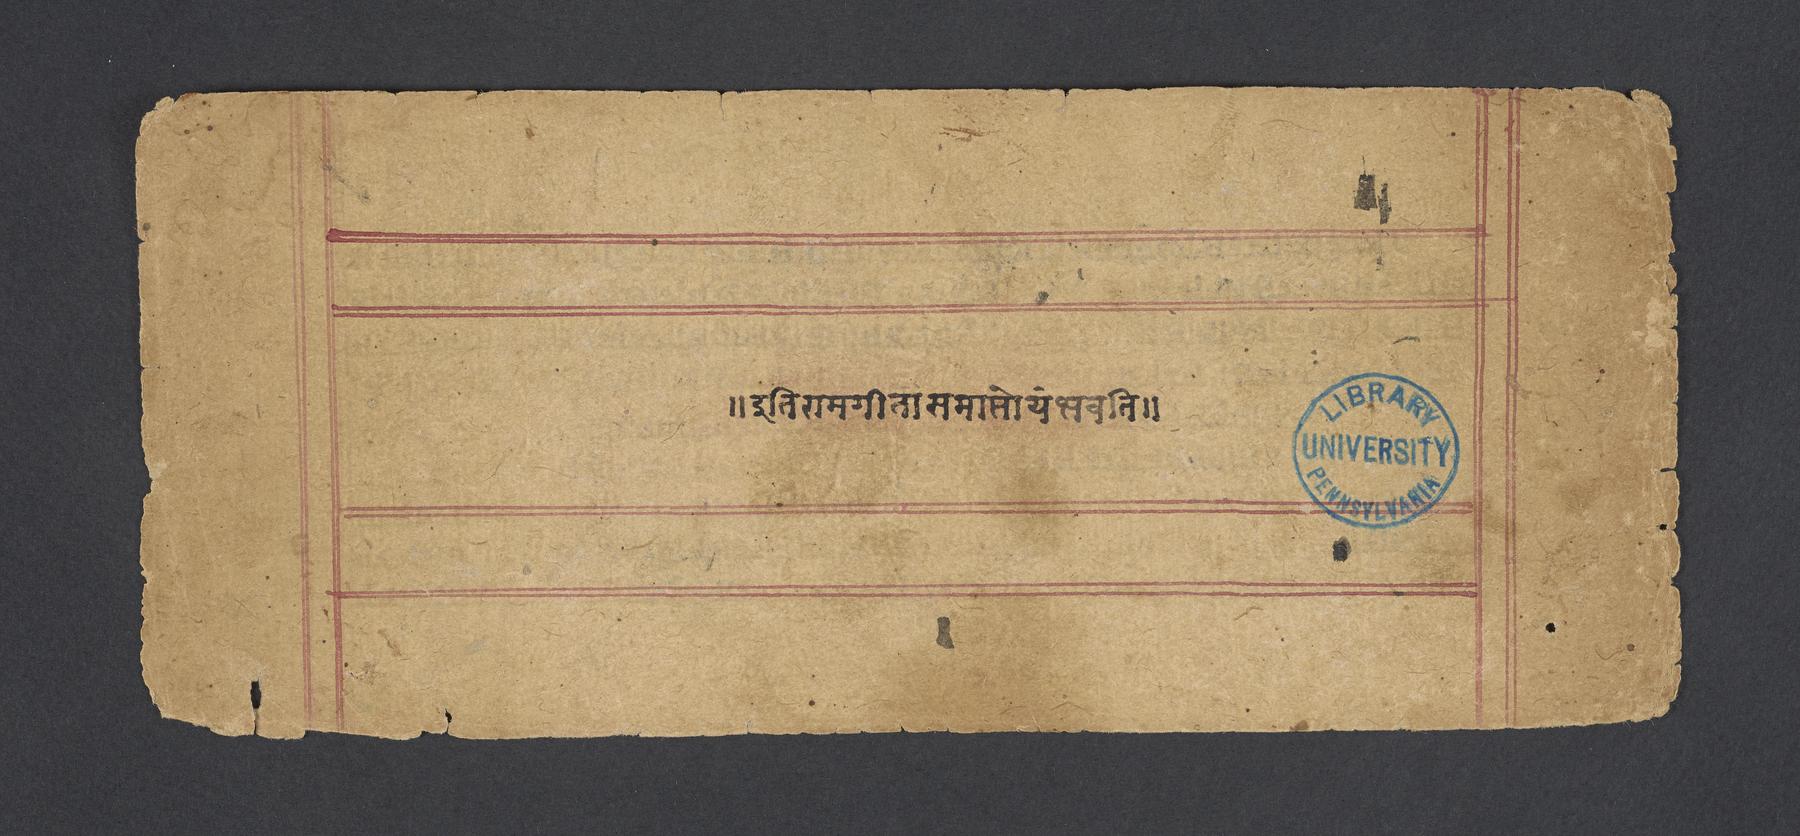 ॥इतिरामगीतासमाप्तोयंभवति॥
LIBRARY
UNIVERSITY
PENNSYLVANIA